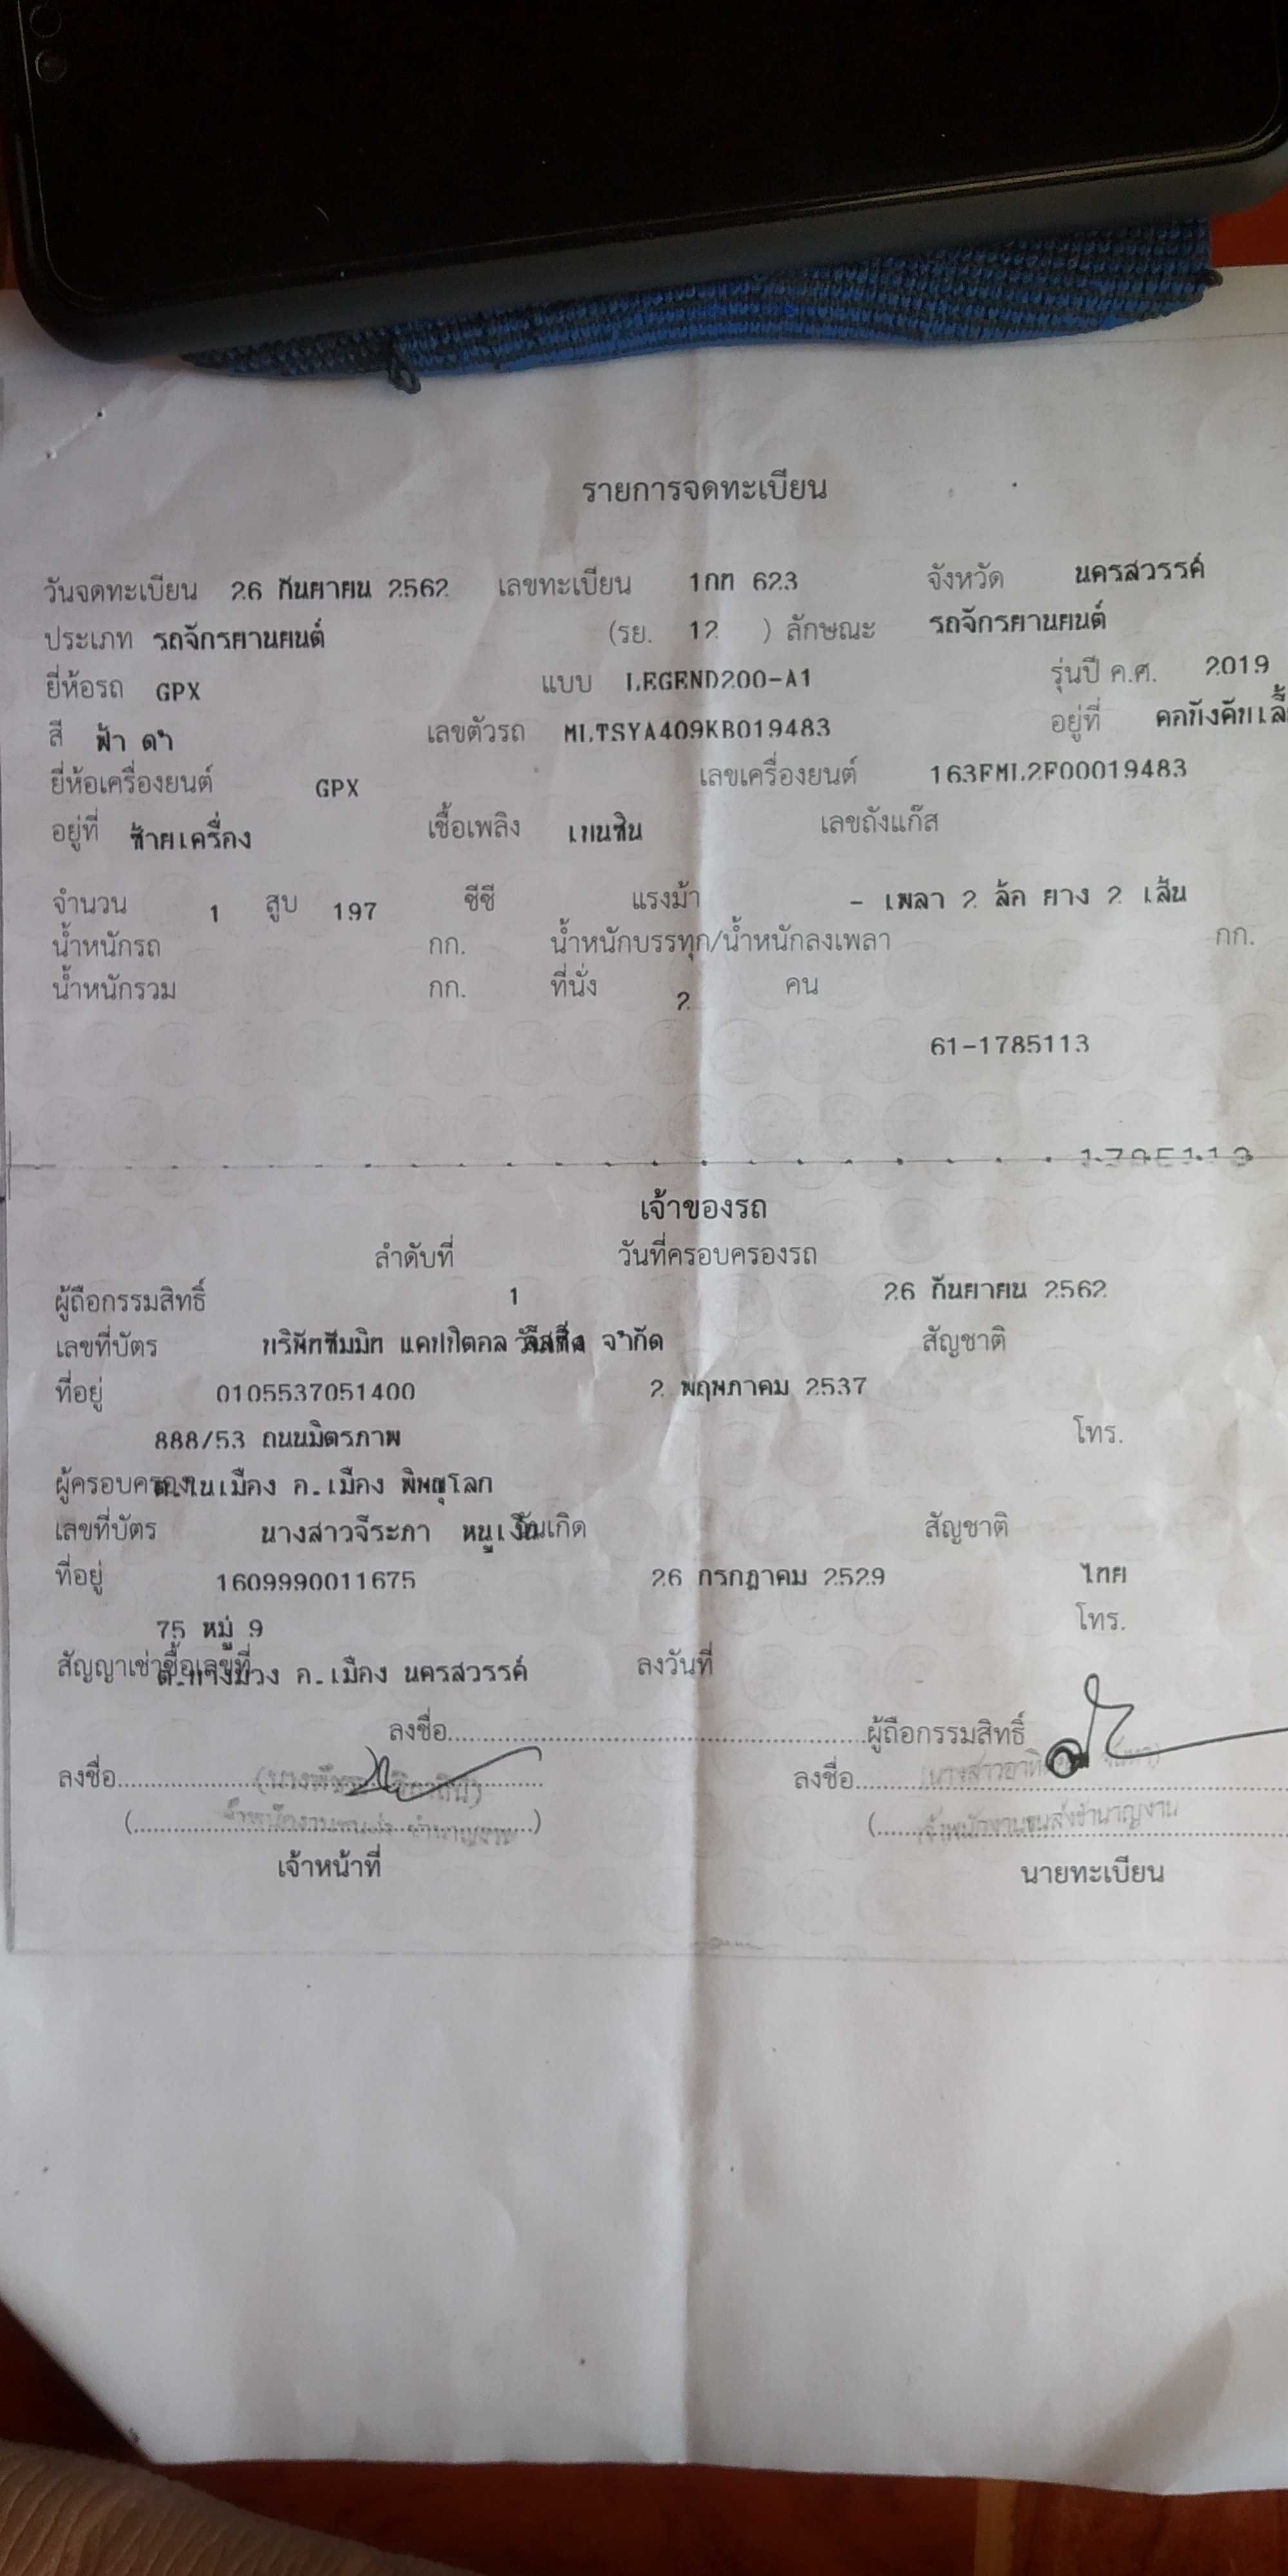 รายการจดทะเบียน
วันจดทะเบียน 26 กันยายน 2562 เลขทะเบียน 1กท 623 จังหวัด นครสวรรค์
ประเภท รถจักรยานยนต์ (รย. 12 ) ลักษณะ รถจักรยานยนต์
ยี่ห้อรถ GPX แบบ LEGEND200-A1 รุ่นปี ค.ศ. 2019
สี ฟ้า ดำ เลขตัวรถ MLTSYA409KB019483 อยู่ที่ คอบังคับเลี้
ยี่ห้อเครื่องยนต์ GPX เลขเครื่องยนต์ 163FML2F00019483
อยู่ที่ ซ้ายเครื่อง เชื้อเพลิง เบนซิน เลขถังแก๊ส
จำนวน 1 สูบ 197 ซีซี แรงม้า - เพลา 2 ล้อ ยาง 2 เส้น
น้ำหนักรถ กก. น้ำหนักบรรทุก/น้ำหนักลงเพลา กก.
น้ำหนักรวม กก. ที่นั่ง 2 คน
61-1785113
1785113
เจ้าของรถ
ลำดับที่ วันที่ครอบครองรถ
ผู้ถือกรรมสิทธิ์ 1 26 กันยายน 2562
เลขที่บัตร บริษัทซัมมิท แคปปิตอล ลีสซิ่ง จำกัด สัญชาติ
ที่อยู่ 0105537051400 2 พฤษภาคม 2537
888/53 ถนนมิตรภาพ โทร.
ผู้ครอบครอง ต.ในเมือง อ.เมือง พิษณุโลก
เลขที่บัตร นางสาวจีระภา หนูเงิน วันเกิด สัญชาติ
ที่อยู่ 1609990011675 26 กรกฎาคม 2529 ไทย
75 หมู่ 9 โทร.
สัญญาเช่าซื้อเลขที่ ต.บางม่วง อ.เมือง นครสวรรค์ ลงวันที่
ลงชื่อ ผู้ถือกรรมสิทธิ์
ลงชื่อ ลงชื่อ
เจ้าพนักงานขนส่งชำนาญงาน เจ้าพนักงานขนส่งชำนาญงาน
เจ้าหน้าที่ นายทะเบียน